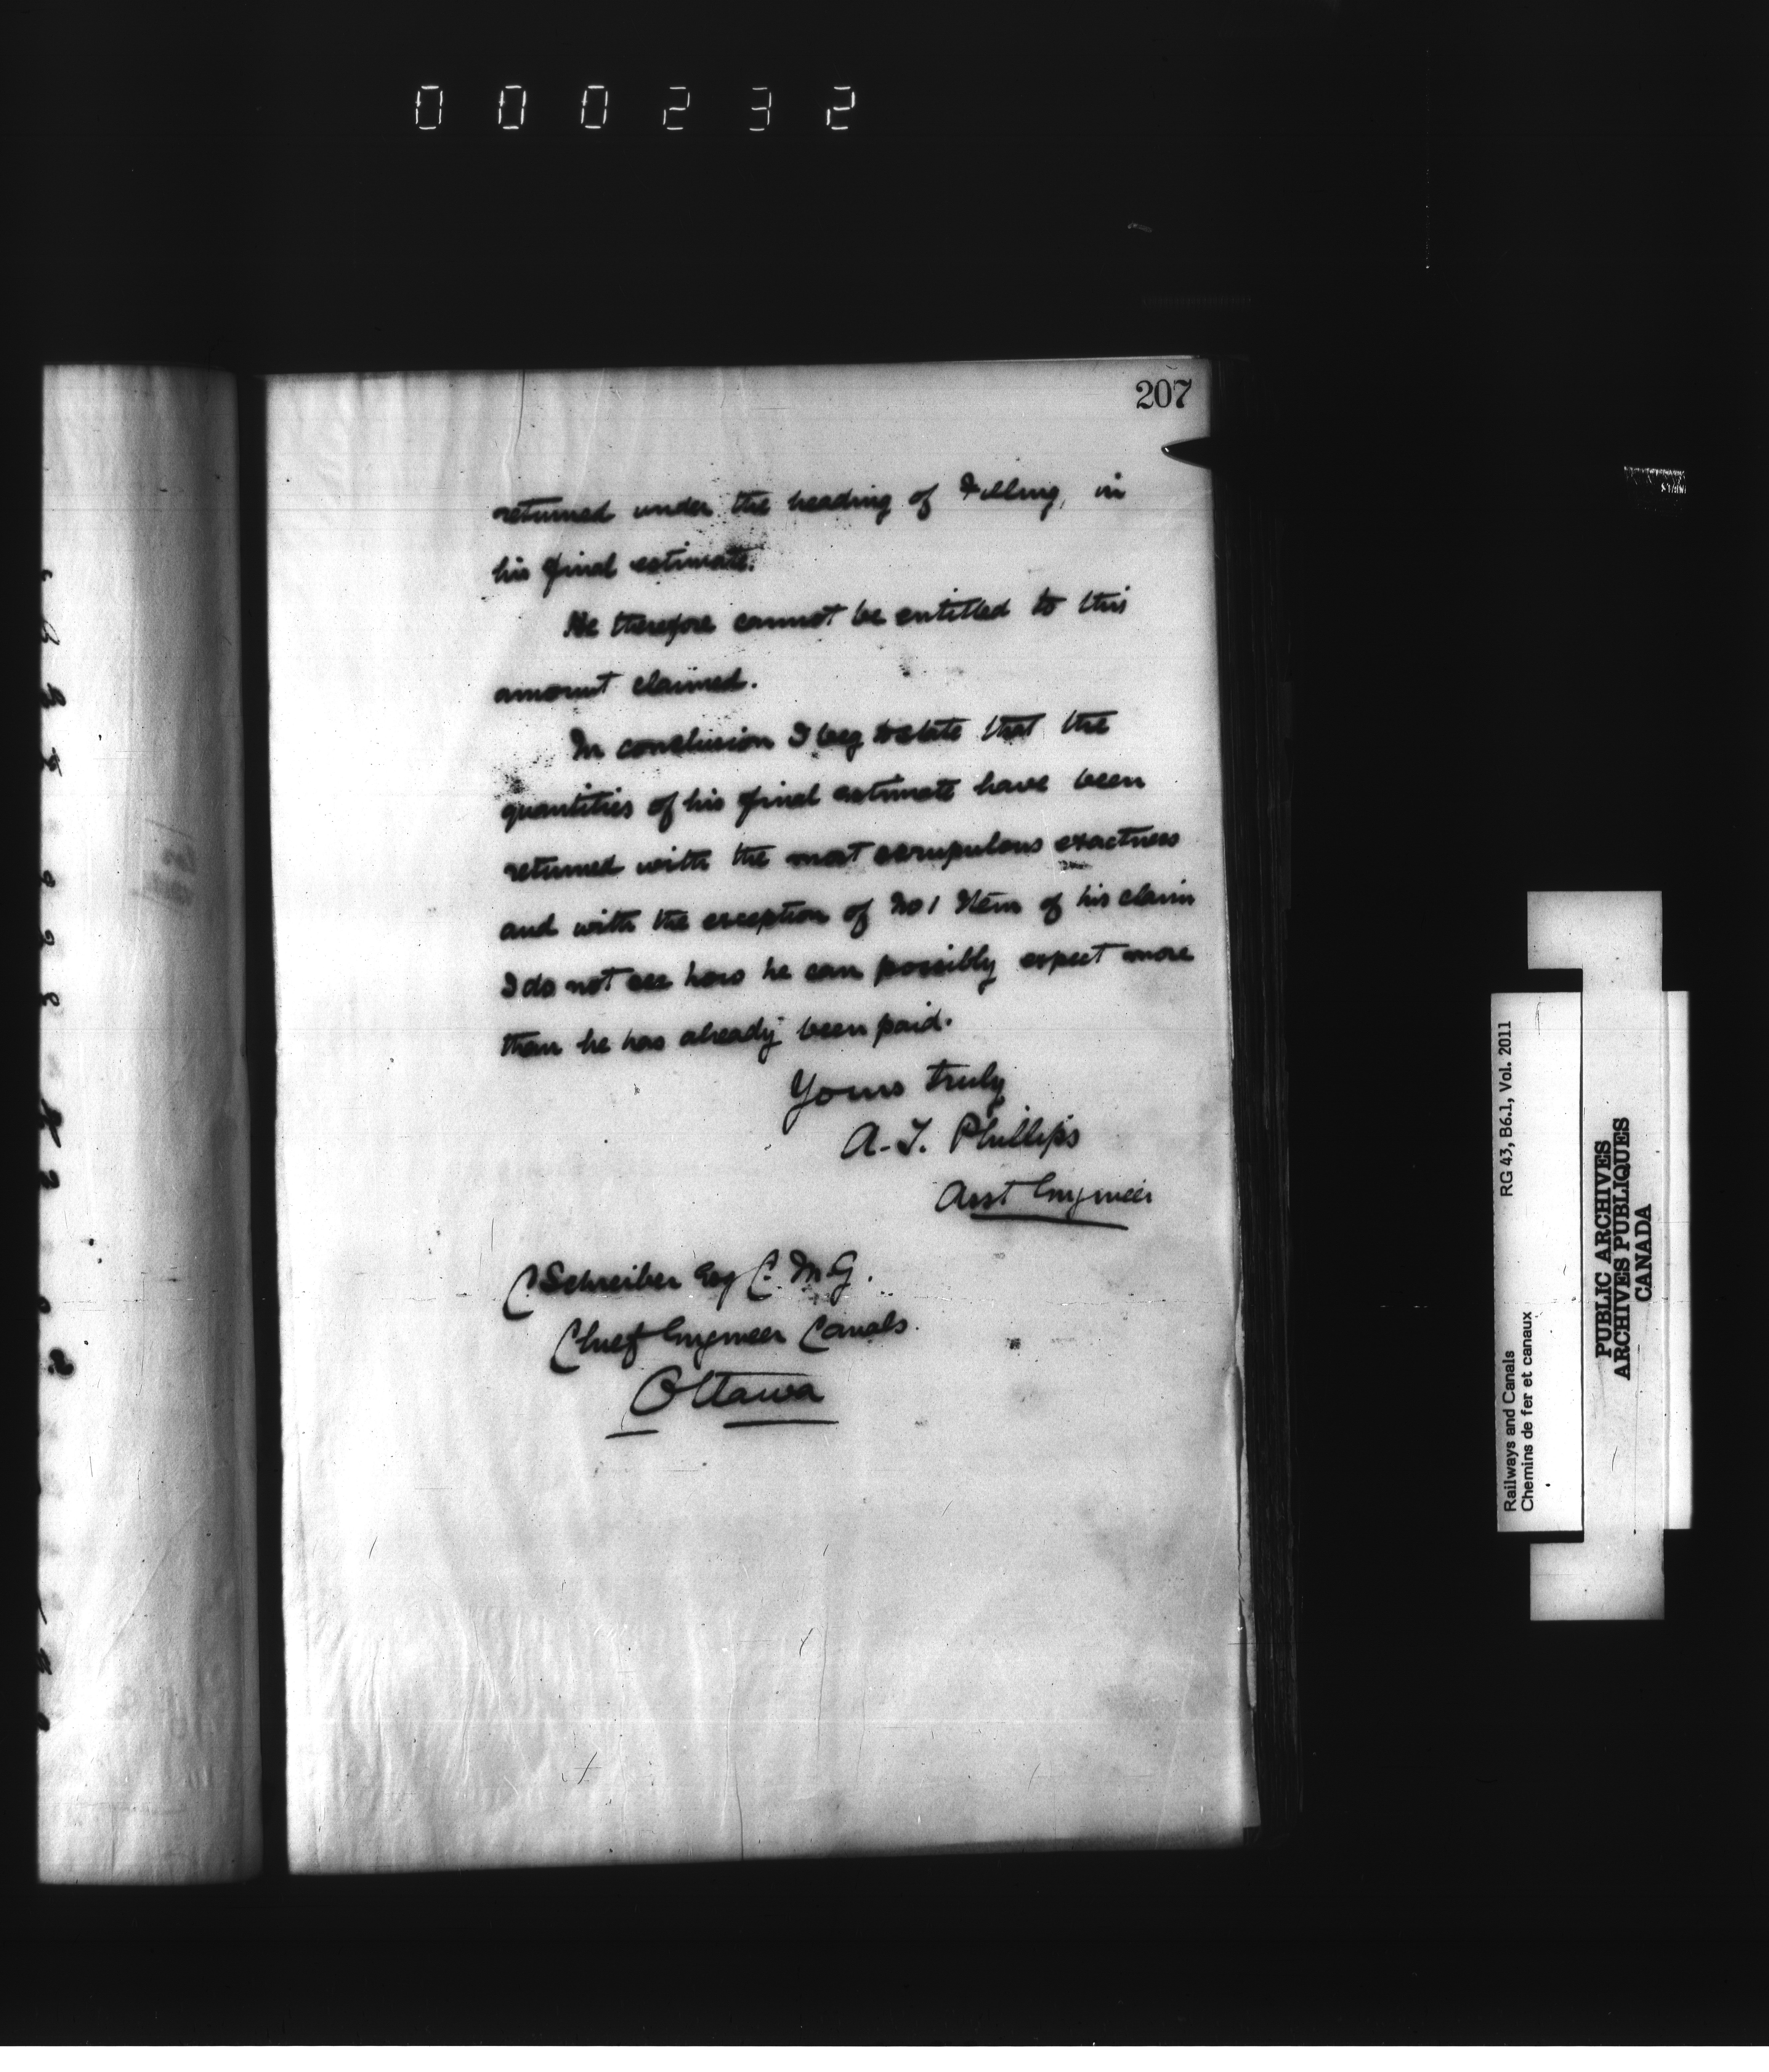 000232
207
returned under the heading of Filling, in
his final estimate.
He therefore cannot be entitled to this
amount claimed.
In conclusion I beg to state that the
quantities of his final estimate have been
returned with the most scrupulous exactness
and with the exception of No 1 Item of his claim
I do not see how he can possibly expect more
than he has already been paid.
Yours truly
A. J. Phillips
Asst Engineer
C Schreiber Esq C. M. G.
Chief Engineer Canals.
Ottawa
Railways and Canals RG 43, B6.1, Vol. 2011
Chemins de fer et canaux
PUBLIC ARCHIVES
ARCHIVES PUBLIQUES
CANADA